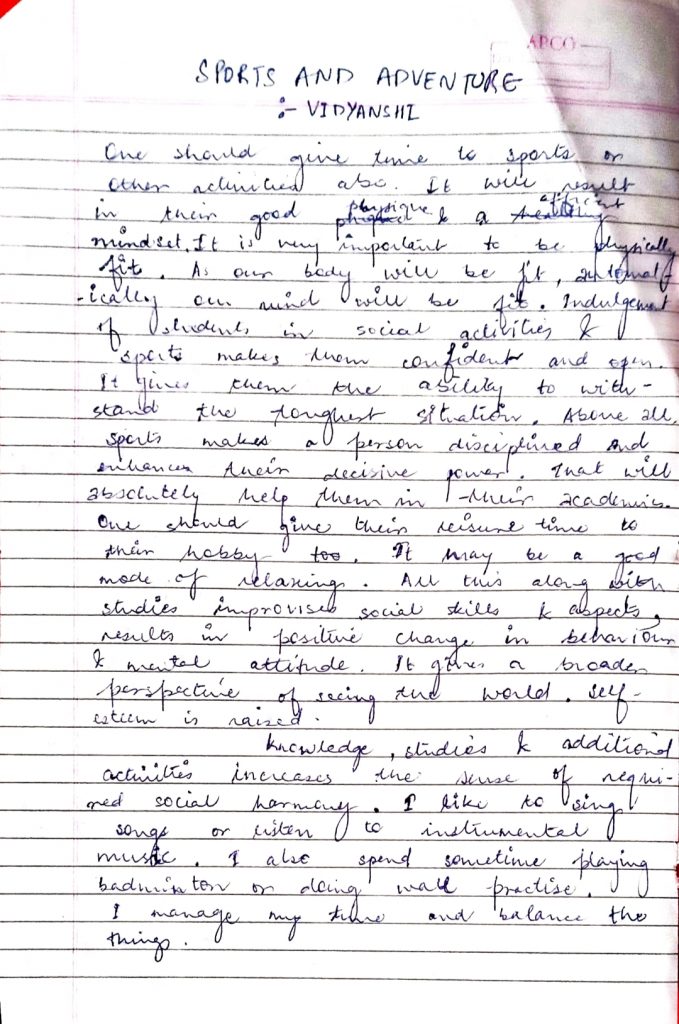 APCO
SPORTS AND ADVENTURE
:- VIDYANSHI
One should give time to sports or
other activities also. It will result
in their good physique & a efficient
mindset. It is very important to be physically
fit. As our body will be fit, automat-
-ically our mind will be fit. Indulgement
of students in social activities &
sports makes them confident and open.
It gives them the ability to with-
stand the toughest situation. Above all,
sports makes a person disciplined and
enhances their decisive power. That will
absolutely help them in their academics.
One should give their leisure time to
their hobby too. It may be a good
mode of relaxing. All this along with
studies improvises social skills & aspects,
results in positive change in behaviour
& mental attitude. It gives a broader
perspective of seeing the world. Self-
esteem is raised.
Knowledge, studies & additional
activities increases the sense of requi-
red social harmony. I like to sing
songs or listen to instrumental
music. I also spend sometime playing
badminton or doing walk practise.
I manage my time and balance the
things.